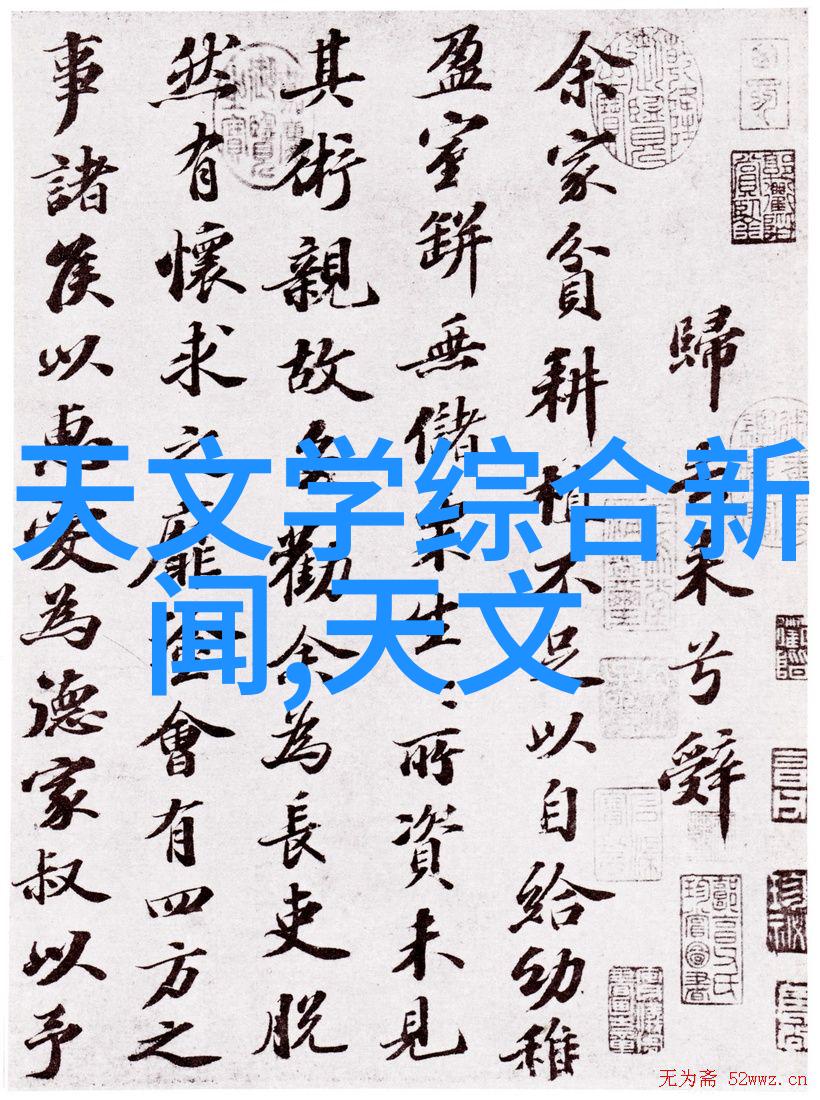 天文学综合新
闻,天文
歸去来兮辭
余家貧耕植不足以自給幼稚
盈室缾無儲粟生〻所資未見
其術親故多勸余為長吏脫
然有懷求之靡途會有四方之
事諸侯以惠愛為德家叔以予
无为斋 52wwz.cn